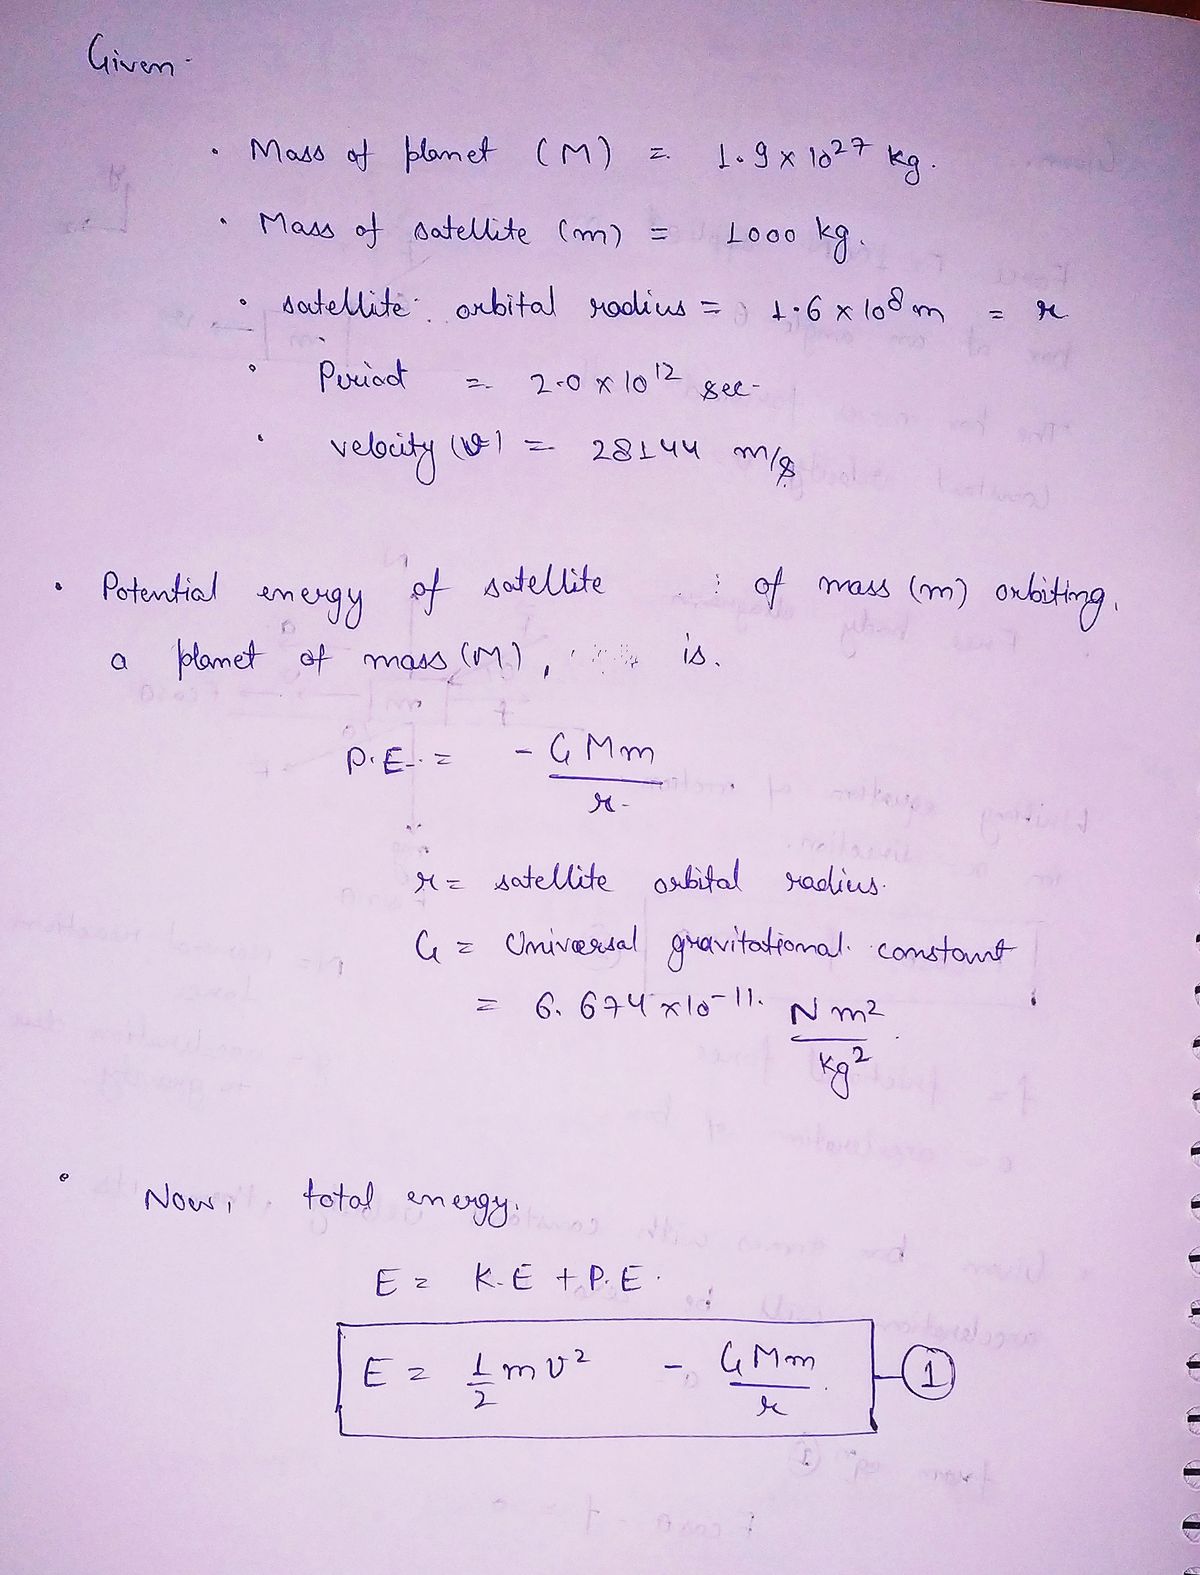 Given-
• Mass of planet (M) = 1.9 × 10²⁷ kg.
• Mass of satellite (m) = 1000 kg.
• satellite orbital radius = 1.6 × 10⁸ m = r
• Period = 2.0 × 10¹² sec-
• velocity (v) = 28144 m/s
• Potential energy of satellite of mass (m) orbiting.
a planet of mass (M), is.
P.E. = - GMm / r
r = satellite orbital radius.
G = Universal gravitational constant
= 6.674 × 10⁻¹¹ N m² / kg²
• Now, total energy.
E = K.E + P.E.
E = 1/2 m v² - GMm / r — 1